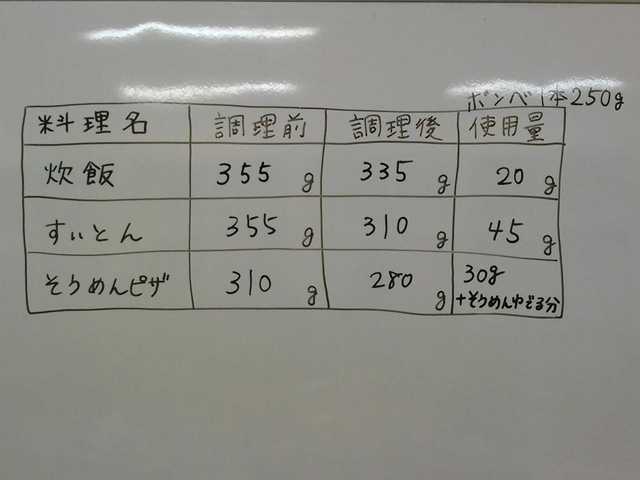 ボンベ1本250g
料理名 調理前 調理後 使用量
炊飯 355g 335g 20g
すいとん 355g 310g 45g
そうめんピザ 310g 280g 30g
+そうめんゆでる分